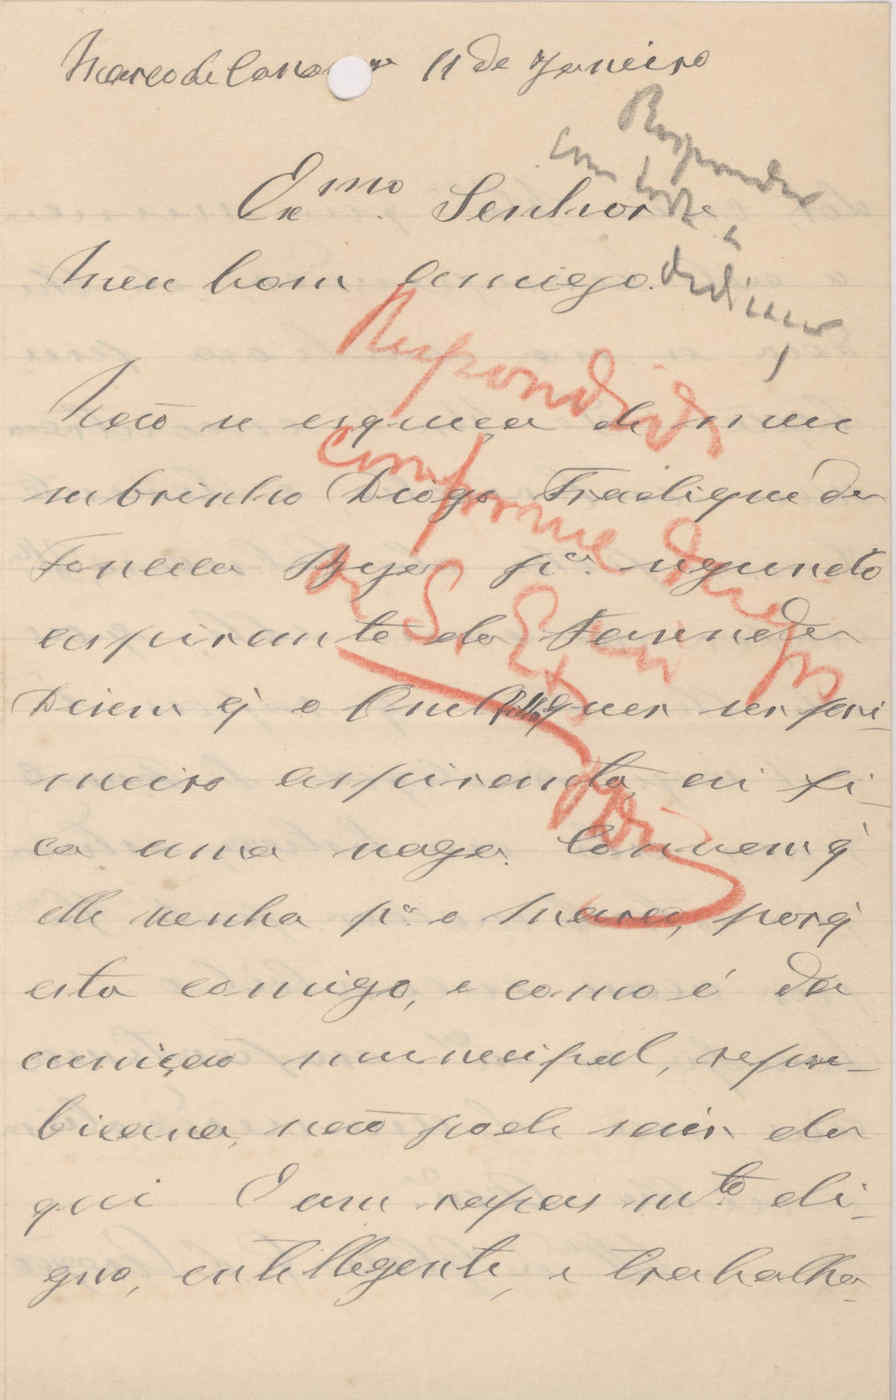 Marco de Cana 11 de Janeiro
Responder
com toda a
dedicaç
Exmo. Senhor
Meu bom amigo.
Respondida
conforme
de S. Exa
Não se esqueça de meu
subrinho Diogo Fradique da
Fonseca pa. segundo
aspirante da Fasenda
Disem q̃ o quer ser pri-
meiro aspirante, ai fi-
ca uma vaga. Convem q̃
elle venha pa. o Marco, porq̃
esta comigo, e como é da
comição municipal, repu-
bicana, não pode sair da
qui E um rapas mto di-
gno, entillegente, e trabalha-